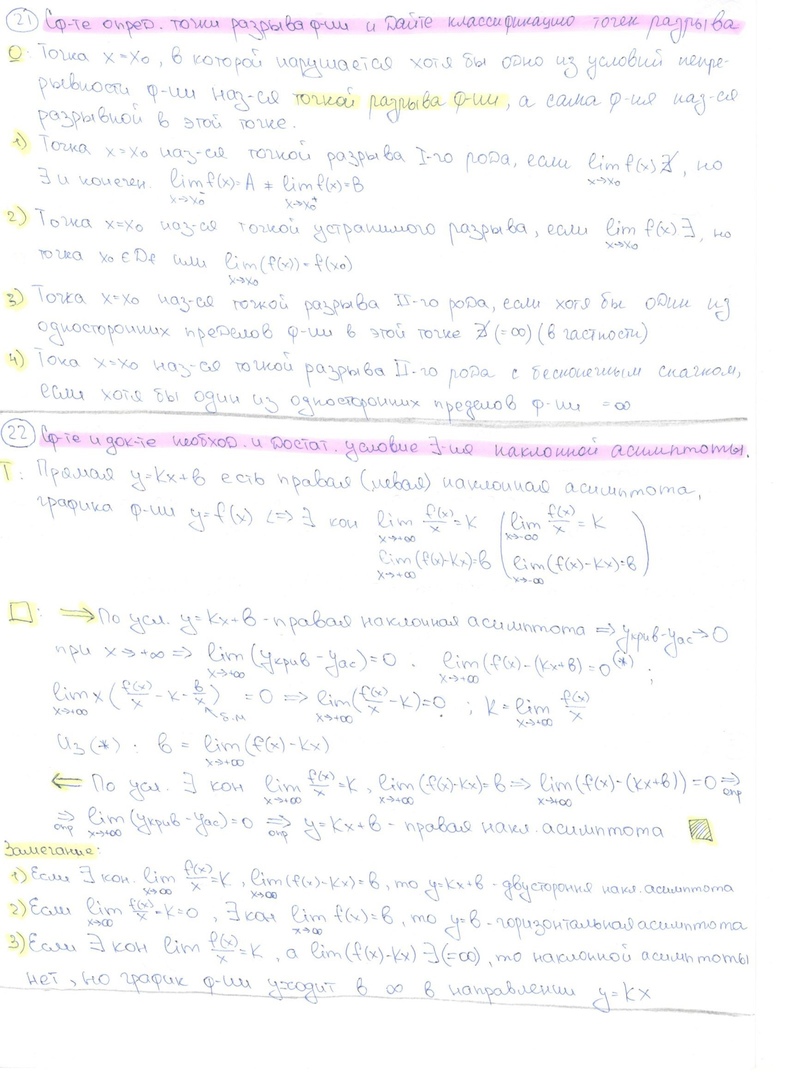 21 Сф-те опред. точки разрыва ф-ии и дайте классификацию точек разрыва
О: Точка x=x₀, в которой нарушается хотя бы одно из условий непре-
рывности ф-ии наз-ся точкой разрыва ф-ии, а сама ф-ия наз-ся
разрывной в этой точке.
1) Точка x=x₀ наз-ся точкой разрыва I-го рода, если lim x→x₀ f(x) ∄, но
∃ и конечен. lim x→x₀⁻ f(x)=A ≠ lim x→x₀⁺ f(x)=B
2) Точка x=x₀ наз-ся точкой устранимого разрыва, если lim x→x₀ f(x) ∃, но
точка x₀ ∈ Df или lim x→x₀ (f(x))=f(x₀)
3) Точка x=x₀ наз-ся точкой разрыва II-го рода, если хотя бы один из
односторонних пределов ф-ии в этой точке ∄ (=∞) (в частности)
4) Тока x=x₀ наз-ся точкой разрыва II-го рода с бесконечным скачком,
если хотя бы один из односторонних пределов ф-ии =∞
22 Сф-те и док-те необход. и достат. условие ∃-ия наклонной асимптоты.
Т: Прямая y=kx+в есть правая (левая) наклонная асимптота,
графика ф-ии y=f(x) <=> ∃ кон lim x→+∞ f(x)/x = K (lim x→-∞ f(x)/x = K
lim x→+∞ (f(x)-kx)=в lim x→-∞ (f(x)-kx)=в)
□: => По усл. y=kx+в - правая наклонная асимптота => yкрив-yас→0
при x→+∞ => lim x→+∞ (yкрив-yас)=0. lim x→+∞ (f(x)-(kx+в)=0 (*) ;
lim x→+∞ x(f(x)/x - K - в/x) = 0 => lim x→+∞ (f(x)/x - K)=0 ; K = lim x→+∞ f(x)/x
б.м
Из (*) : в = lim x→+∞ (f(x)-kx)
<= По усл. ∃ кон lim x→+∞ f(x)/x=K, lim x→+∞ (f(x)-kx)=в => lim x→+∞ (f(x)-(kx+в))=0 => опр
=> опр lim x→+∞ (yкрив-yас)=0 => опр y=kx+в - правая накл. асимптота
Замечание:
1) Если ∃ кон. lim x→∞ f(x)/x=K, lim x→∞ (f(x)-kx)=в, то y=kx+в - двустороння накл. асимптота
2) Если lim x→∞ f(x)/x=K=0, ∃ кон lim x→∞ f(x)=в, то y=в - горизонтальная асимптота
3) Если ∃ кон lim x→∞ f(x)/x=K, а lim (f(x)-kx) ∃(=∞), то наклонной асимптоты
нет, но график ф-ии уходит в ∞ в направлении y=kx